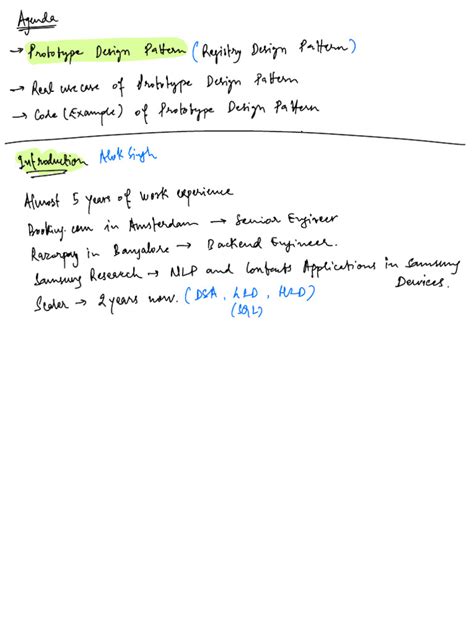 Agenda
→ Prototype Design Pattern (Registry Design Pattern)
→ Real use case of Prototype Design Pattern
→ Code (Example) of Prototype Design Pattern
Introduction Alok Singh
Almost 5 years of work experience
Booking.com in Amsterdam → Senior Engineer
Razorpay in Bangalore → Backend Engineer.
Samsung Research → NLP and Applications in Samsung
Devices.
Scaler → 2 years now. (DSA, LLD, HLD)
(SQL)